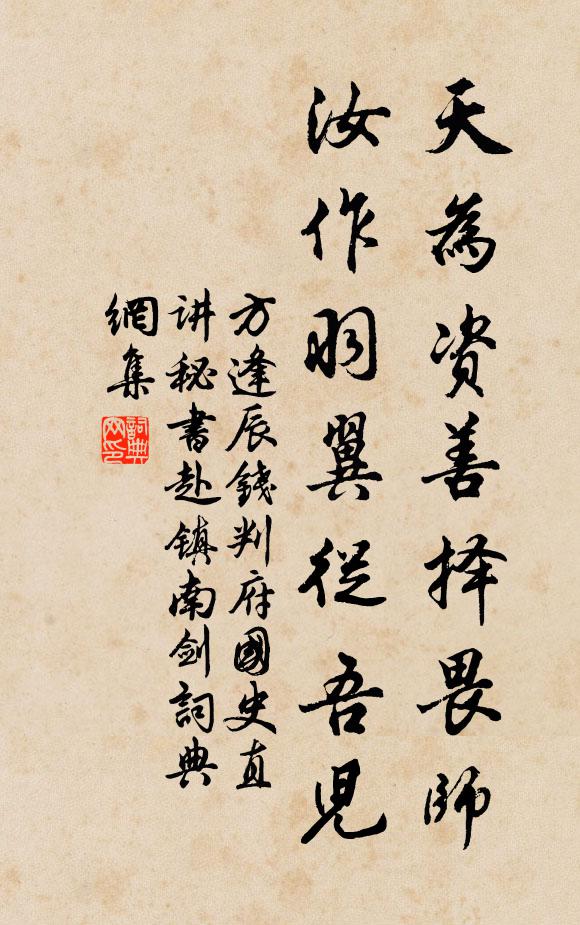 天為资善择畏師
汝作羽翼從吾児
方逢辰錢判府國史直
讲秘書赴镇南剑詞典
網集
詞典网印